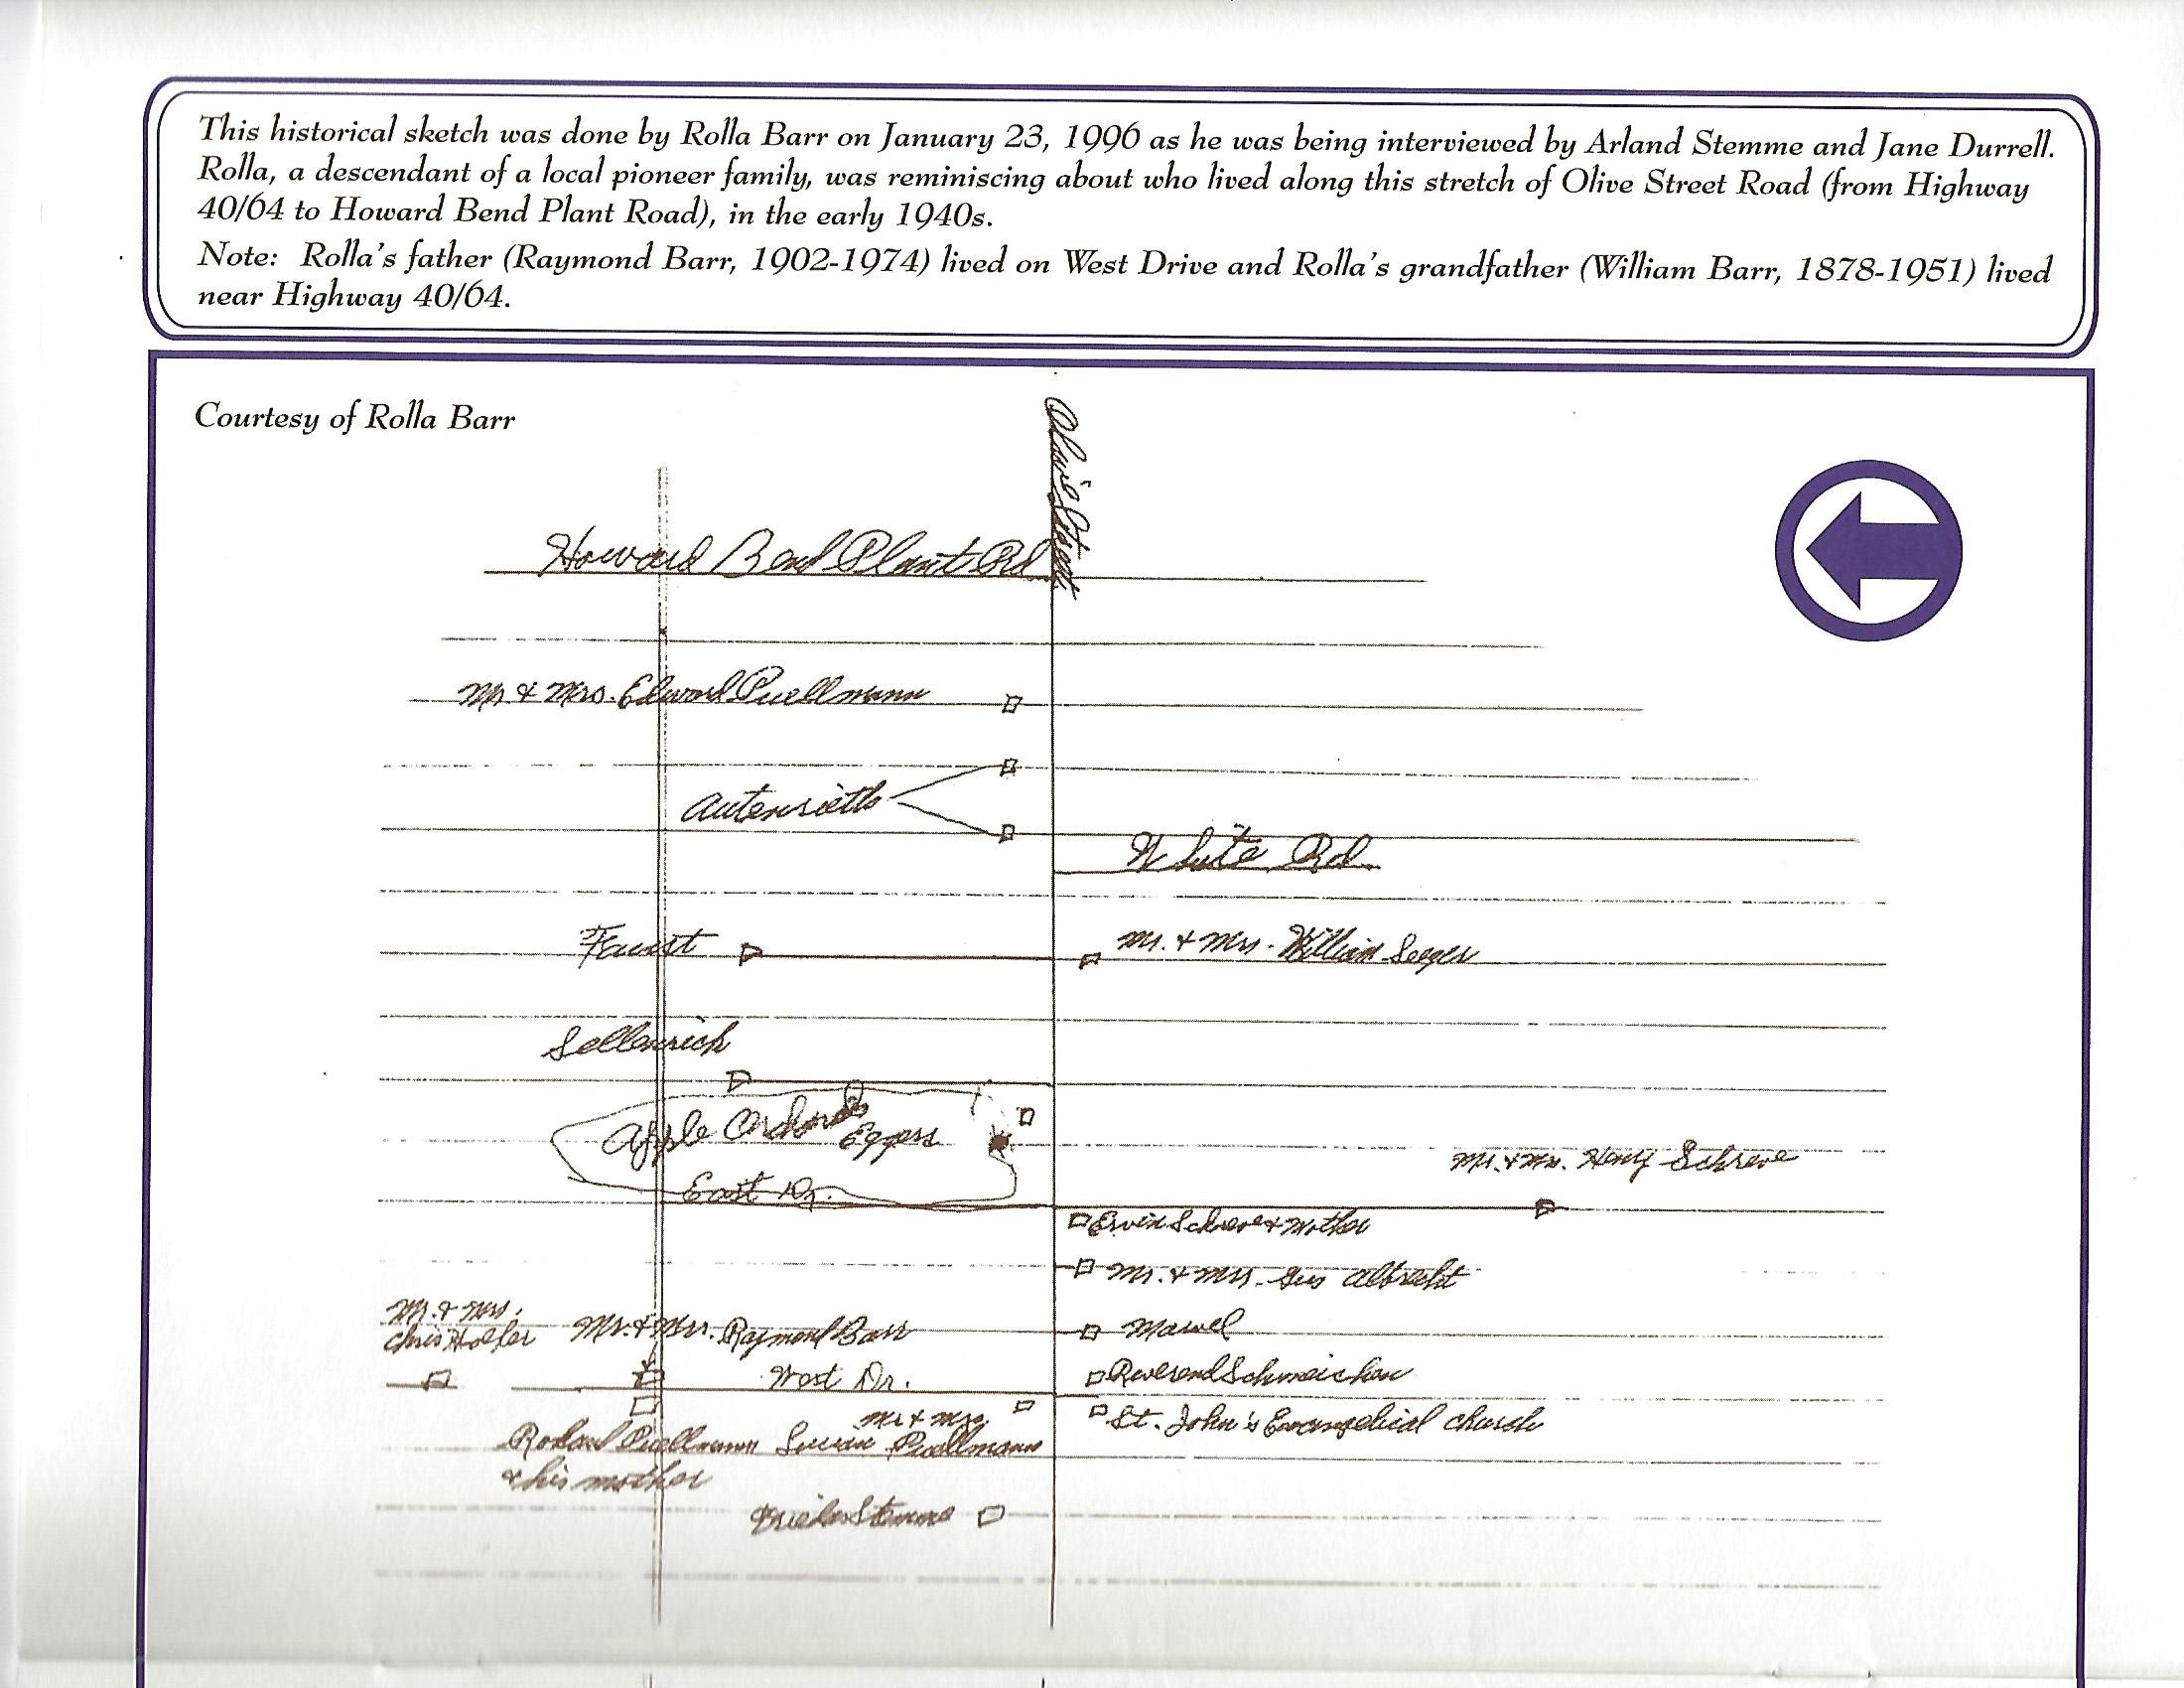 This historical sketch was done by Rolla Barr on January 23, 1996 as he was being interviewed by Arland Stemme and Jane Durrell.
Rolla, a descendant of a local pioneer family, was reminiscing about who lived along this stretch of Olive Street Road (from Highway
40/64 to Howard Bend Plant Road), in the early 1940s.
Note: Rolla's father (Raymond Barr, 1902-1974) lived on West Drive and Rolla's grandfather (William Barr, 1878-1951) lived
near Highway 40/64.
Courtesy of Rolla Barr
Olive Street
Howard Bend Plant Rd
Mr. & Mrs. Edward Puellmann
Autenrieth
White Rd.
Faust
Mr. & Mrs. William Seeger
Sellenrich
Apple Orchards
Eggers
Mr. & Mrs. Henry Schreve
East Dr.
Ervin Schreve & Mother
Mr. & Mrs. Gus Albrecht
Mr. & Mrs.
Chris
Mr. & Mrs. Raymond Barr
West Dr.
Reverend
St. John's Evangelical Church
Mr & Mrs
Puellmann
Puellmann
& his mother
Stemme